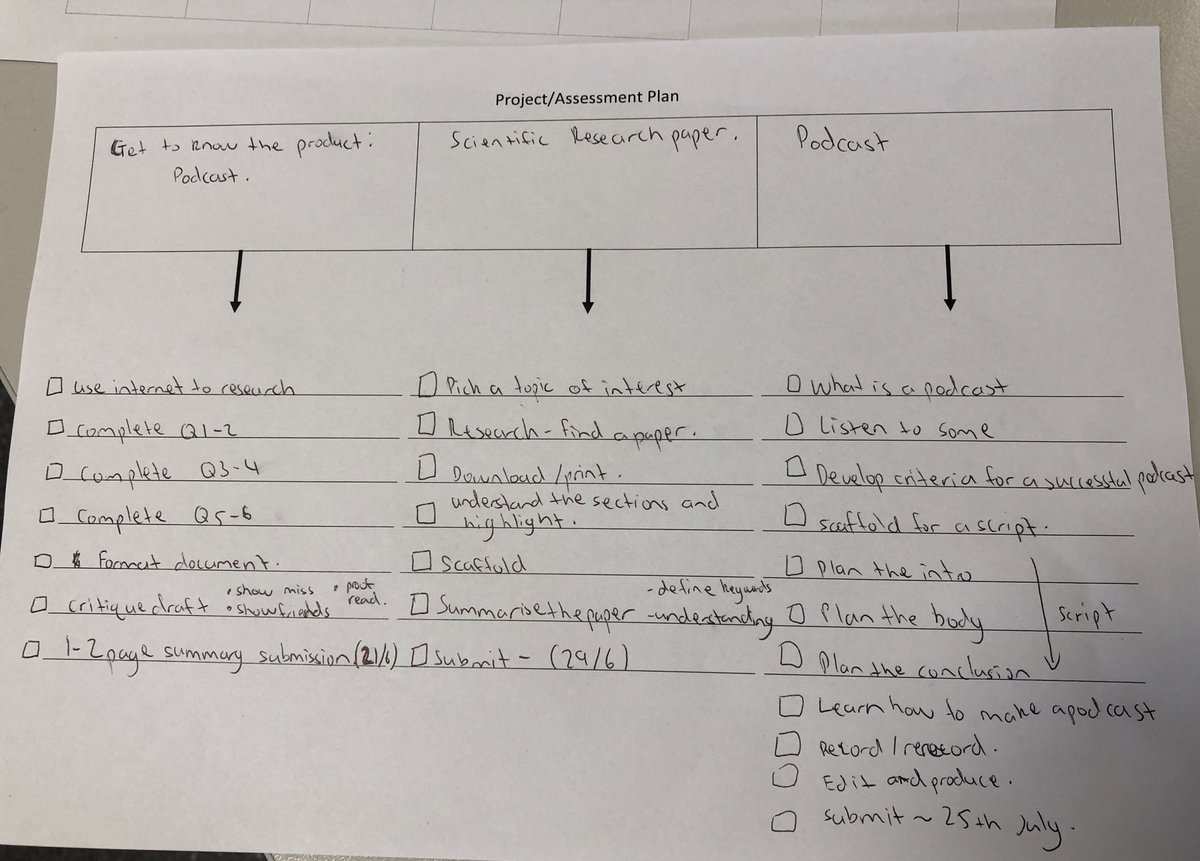 Project/Assessment Plan
Get to know the product:
Podcast.
Scientific Research paper.
Podcast
use internet to research
complete Q1-2
complete Q3-4
complete Q5-6
Format document.
critique draft
• show miss
• show friends
• proof
read.
1-2 page summary submission (21/6)
Pick a topic of interest
Research - find a paper.
Download/print.
understand the sections and
highlight.
Scaffold
Summarise the paper
- define keywords
- understanding
Submit - (29/6)
What is a podcast
Listen to some
Develop criteria for a successful podcast
scaffold for a script.
Plan the intro
Plan the body
Plan the conclusion
script
Learn how to make a podcast
Record/rerecord.
Edit and produce.
submit ~ 25th July.